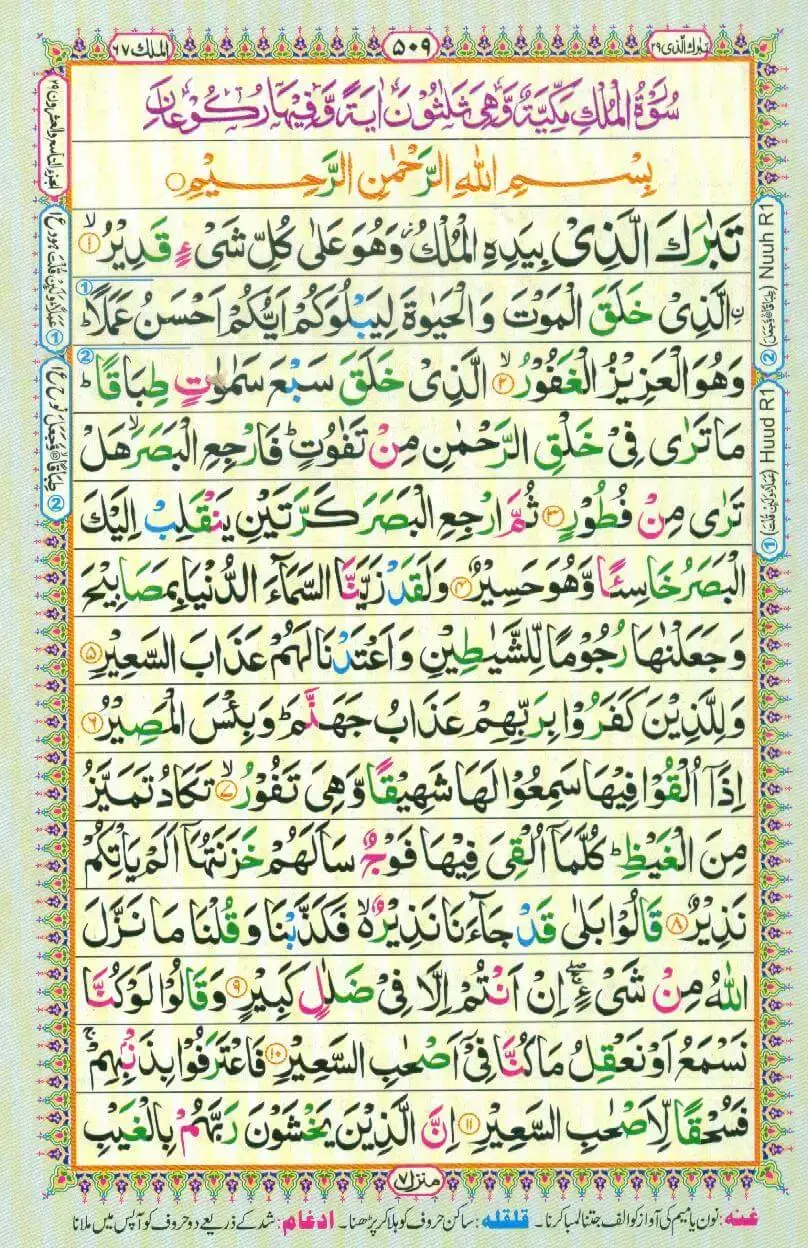 تبٰرك الذی ۲۹
۵۰۹
الملك ۶۷
سُوْرَةُ الْمُلْكِ مَكِّیَّةٌ وَّهِیَ ثَلٰثُوْنَ اٰیَةً وَّفِیْهَا رُكُوْعَانِ
بِسْمِ اللّٰهِ الرَّحْمٰنِ الرَّحِیْمِ
تَبٰرَكَ الَّذِیْ بِیَدِهِ الْمُلْكُ ؗ وَهُوَ عَلٰی كُلِّ شَیْءٍ قَدِیْرُ ۙ﴿۱﴾
ِ۟الَّذِیْ خَلَقَ الْمَوْتَ وَالْحَیٰوةَ لِیَبْلُوَكُمْ اَیُّكُمْ اَحْسَنُ عَمَلًا ؕ
وَهُوَ الْعَزِیْزُ الْغَفُوْرُ ۙ﴿۲﴾ الَّذِیْ خَلَقَ سَبْعَ سَمٰوٰتٍ طِبَاقًا ؕ
مَا تَرٰی فِیْ خَلْقِ الرَّحْمٰنِ مِنْ تَفٰوُتٍ ؕ فَارْجِعِ الْبَصَرَ ۙ هَلْ
تَرٰی مِنْ فُطُوْرٍ ﴿۳﴾ ثُمَّ ارْجِعِ الْبَصَرَ كَرَّتَیْنِ یَنْقَلِبْ اِلَیْكَ
الْبَصَرُ خَاسِئًا وَّهُوَ حَسِیْرٌ ﴿۴﴾ وَلَقَدْ زَیَّنَّا السَّمَآءَ الدُّنْیَا بِمَصَابِیْحَ
وَجَعَلْنٰهَا رُجُوْمًا لِّلشَّیٰطِیْنِ وَاَعْتَدْنَا لَهُمْ عَذَابَ السَّعِیْرِ ﴿۵﴾
وَلِلَّذِیْنَ كَفَرُوْا بِرَبِّهِمْ عَذَابُ جَهَنَّمَ ؕ وَبِئْسَ الْمَصِیْرُ ﴿۶﴾
اِذَاۤ اُلْقُوْا فِیْهَا سَمِعُوْا لَهَا شَهِیْقًا وَّهِیَ تَفُوْرُ ۙ﴿۷﴾ تَكَادُ تَمَیَّزُ
مِنَ الْغَیْظِ ؕ كُلَّمَاۤ اُلْقِیَ فِیْهَا فَوْجٌ سَاَلَهُمْ خَزَنَتُهَاۤ اَلَمْ یَاْتِكُمْ
نَذِیْرٌ ﴿۸﴾ قَالُوْا بَلٰی قَدْ جَآءَنَا نَذِیْرٌ ۙ۬ فَكَذَّبْنَا وَقُلْنَا مَا نَزَّلَ
اللّٰهُ مِنْ شَیْءٍ ۖۚ اِنْ اَنْتُمْ اِلَّا فِیْ ضَلٰلٍ كَبِیْرٍ ﴿۹﴾ وَقَالُوْا لَوْ كُنَّا
نَسْمَعُ اَوْ نَعْقِلُ مَا كُنَّا فِیْۤ اَصْحٰبِ السَّعِیْرِ ﴿۱۰﴾ فَاعْتَرَفُوْا بِذَنْۢبِهِمْ ۚ
فَسُحْقًا لِّاَصْحٰبِ السَّعِیْرِ ﴿۱۱﴾ اِنَّ الَّذِیْنَ یَخْشَوْنَ رَبَّهُمْ بِالْغَیْبِ
منزل ۷
غنه: نون یا میم کی آواز کو الف جتنا لمبا کرنا۔ قلقله: ساکن حروف کو ہلا کر پڑھنا۔ ادغام: شد کے ذریعے دو حروف کو آپس میں ملانا
② Nuuh R1
① Huud R1